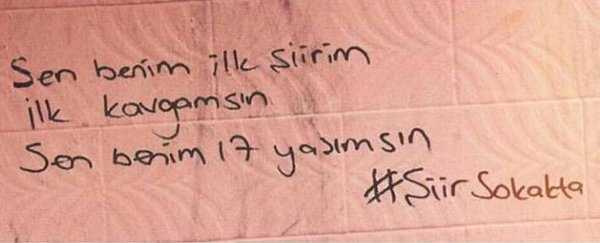 Sen benim ilk şiirim
ilk kavgamsın
Sen benim 17 yaşımsın
#ŞiirSokakta